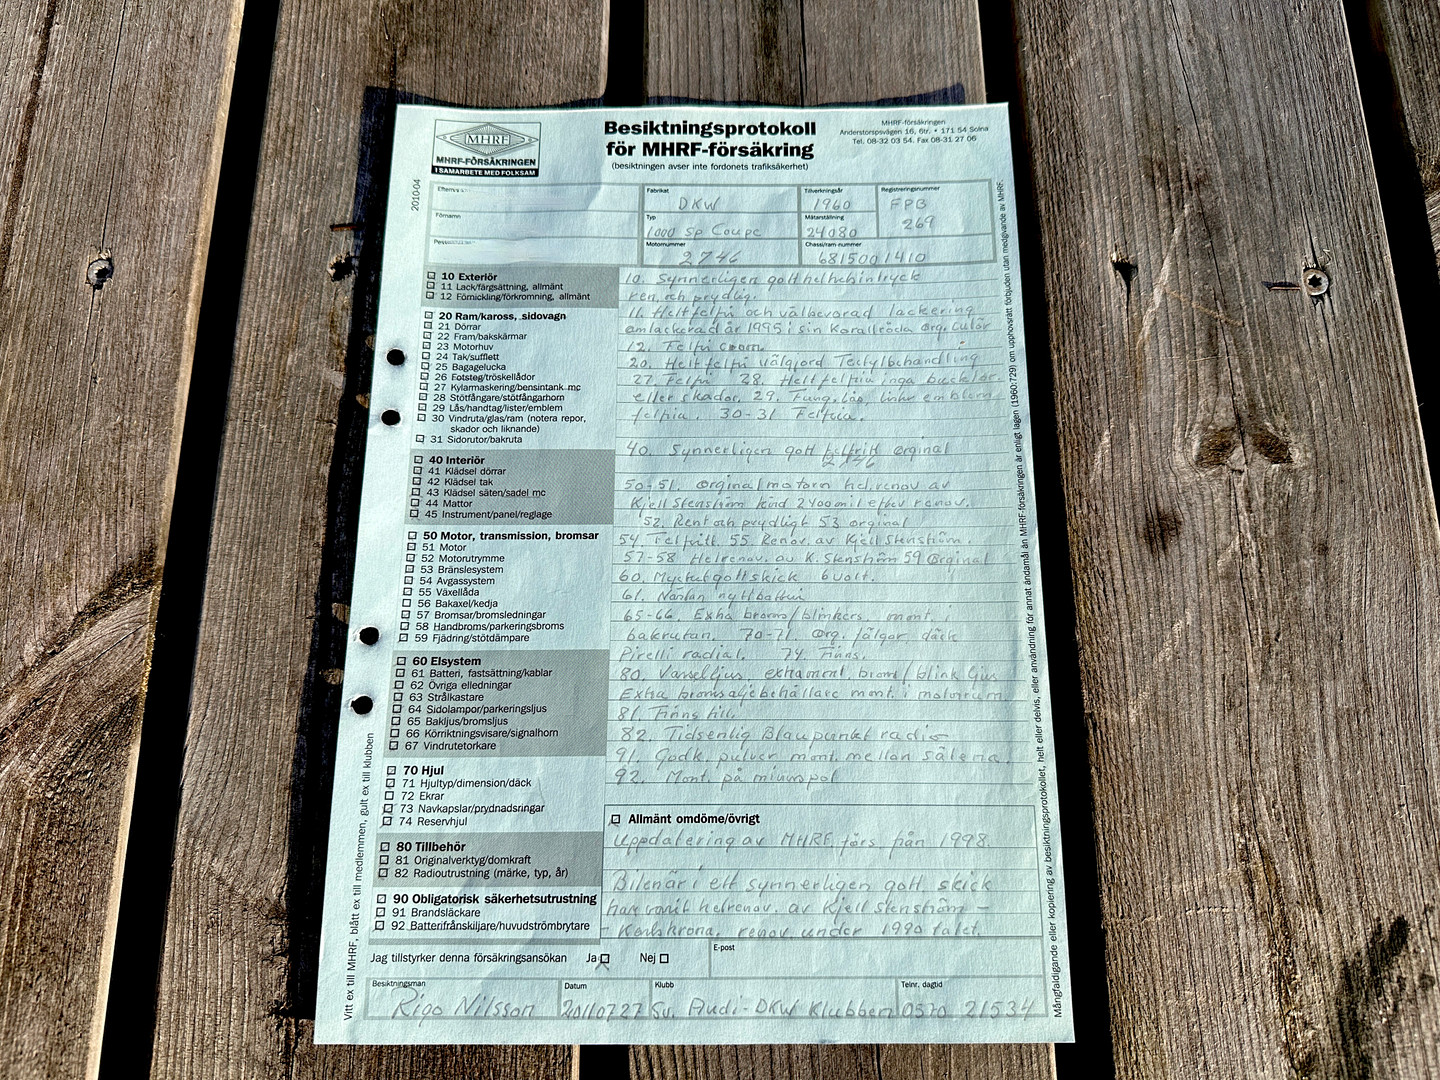 MHRF
MHRF-FÖRSÄKRINGEN
I SAMARBETE MED FOLKSAM
Besiktningsprotokoll
för MHRF-försäkring
(besiktningen avser inte fordonets trafiksäkerhet)
MHRF-försäkringen
Anderstorpsvägen 16, 6tr. • 171 54 Solna
Tel. 08-32 03 54. Fax 08-31 27 06
2010-04
Fabrikat
DKW
Tillverkningsår
1960
Registreringsnummer
FPB
269
Förnamn
Typ
1000 Sp Coupe
Mätarställning
24080
Motornummer
2746
Chassi/ram-nummer
6815001410
10 Exteriör
11 Lack/färgsättning, allmänt
12 Förnickling/förkromning, allmänt
20 Ram/kaross, sidovagn
21 Dörrar
22 Fram/bakskärmar
23 Motorhuv
24 Tak/sufflett
25 Bagagelucka
26 Fotsteg/tröskellådor
27 Kylarmaskering/bensintank mc
28 Stötfångare/stötfångarhorn
29 Lås/handtag/lister/emblem
30 Vindruta/glas/ram (notera repor,
skador och liknande)
31 Sidorutor/bakruta
40 Interiör
41 Klädsel dörrar
42 Klädsel tak
43 Klädsel säten/sadel mc
44 Mattor
45 Instrument/panel/reglage
50 Motor, transmission, bromsar
51 Motor
52 Motorutrymme
53 Bränslesystem
54 Avgassystem
55 Växellåda
56 Bakaxel/kedja
57 Bromsar/bromsledningar
58 Handbroms/parkeringsbroms
59 Fjädring/stötdämpare
60 Elsystem
61 Batteri, fastsättning/kablar
62 Övriga elledningar
63 Strålkastare
64 Sidolampor/parkeringsljus
65 Bakljus/bromsljus
66 Körriktningsvisare/signalhorn
67 Vindrutetorkare
70 Hjul
71 Hjultyp/dimension/däck
72 Ekrar
73 Navkapslar/prydnadsringar
74 Reservhjul
80 Tillbehör
81 Originalverktyg/domkraft
82 Radioutrustning (märke, typ, år)
90 Obligatorisk säkerhetsutrustning
91 Brandsläckare
92 Batterifrånskiljare/huvudströmbrytare
10. Synnerligen gott helhetsintryck
ren och prydlig.
11. Helt felfri och välbevarad lackering
omlackerad år 1995 i sin Korallröda org. Culör
12. Felfri crom.
20. Helt felfri välgjord Tectylbehandling
27. Felfri 28. Helt felfria inga bucklor
eller skador. 29. Fung. lås, linor emblem
felfria. 30-31 Felfria.
40. Synnerligen gott felfritt orginal
2746
50-51. orginalmotorn hel.renov av
Kjell Stenström körd 2400 mil efter renov.
52. Rent och prydligt 53 orginal
54 Felfritt. 55 Renov. av Kjell Stenström.
57-58 Helrenov. av K. Stenström 59 Orginal
60. Mycket gott skick 6 volt.
61. Nästan nytt batteri
65-66. Exha broms/blinkers mont.
bakrutan. 70-71. Org. fälgar däck
Pirelli radial. 74. Finns.
80. Varselljus, exha mont. brom/blink ljus
Exha bromsoljebehållare mont. i motorrum
81. Finns till.
82. Tidsenlig Blaupunkt radio
91. Godk. pulver mont. mellan sätena.
92. Mont. på minuspol
Allmänt omdöme/övrigt
Uppdatering av MHRF förs från 1998.
Bilen är i ett synnerligen gott skick
har varit helrenov. av Kjell Stenström –
Karlskrona, renov under 1990 talet.
Jag tillstyrker denna försäkringsansökan Ja Nej
E-post
Besiktningsman
Rigo Nilsson
Datum
20110727
Klubb
Sv. Audi-DKW Klubben
Telnr. dagtid
0570 21534
Vitt ex till MHRF, blått ex till medlemmen, gult ex till klubben
Mångfaldigande eller kopiering av besiktningsprotokollet, helt eller delvis, eller användning för annat ändamål än MHRF-försäkringen är enligt lagen (1960:729) om upphovsrätt förbjuden utan medgivande av MHRF.